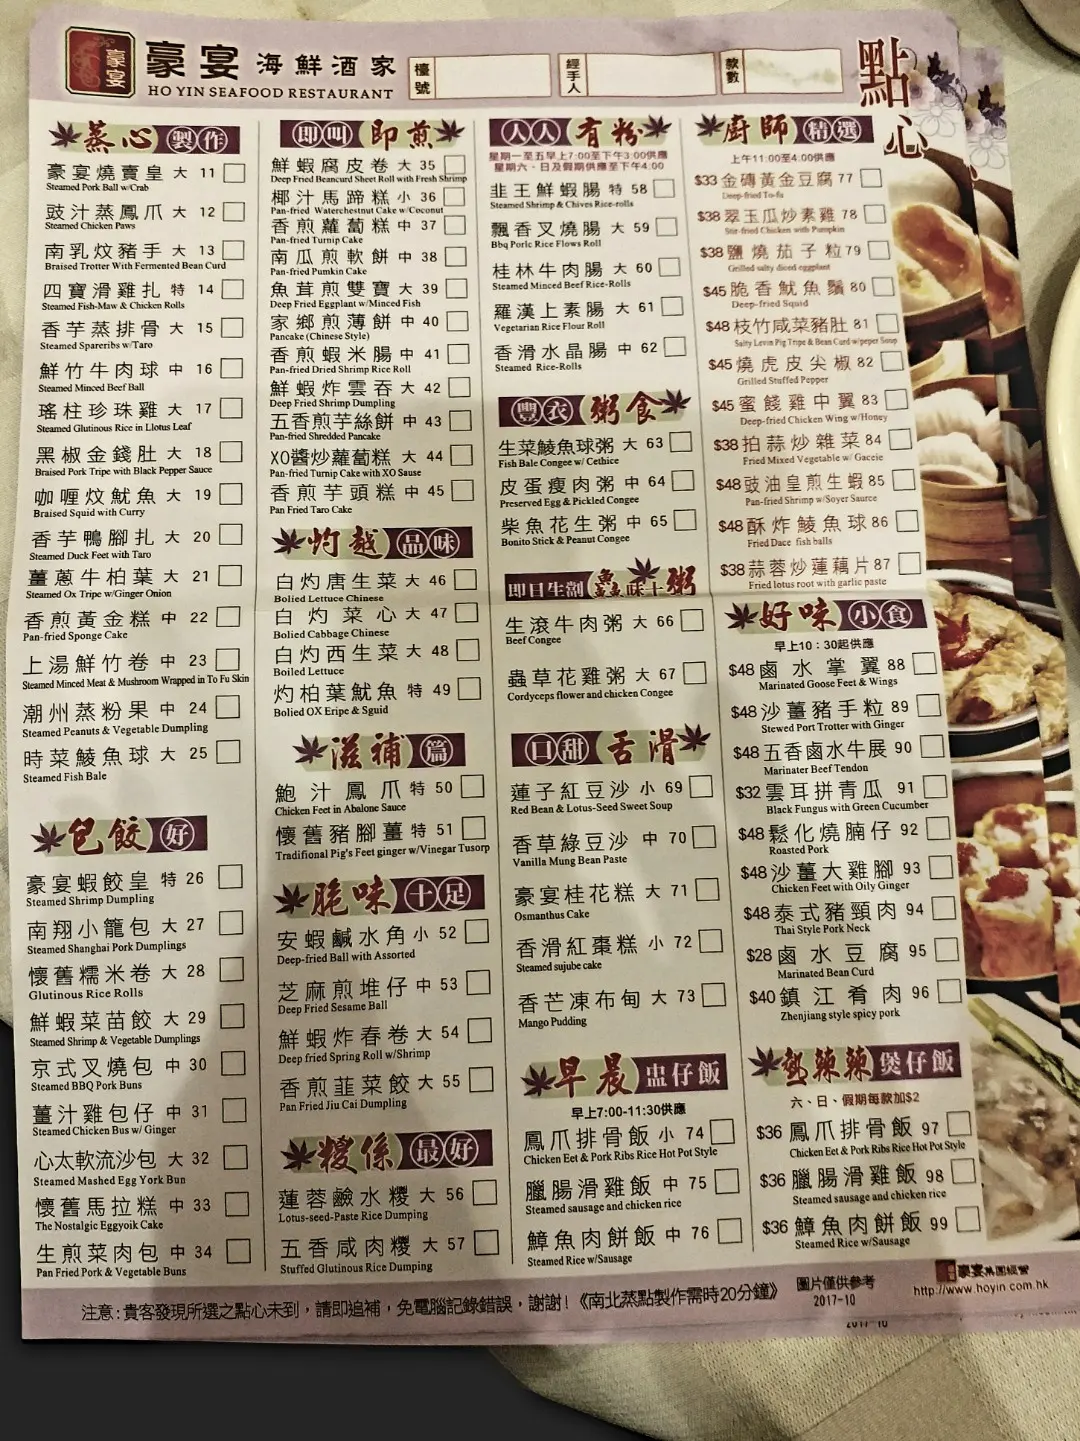 豪宴
豪宴 海鮮酒家
HO YIN SEAFOOD RESTAURANT
檯號
經手人
款數
點心
蒸心 製作
豪宴燒賣皇 大 11
Steamed Pork Ball w/Crab
豉汁蒸鳳爪 大 12
Steamed Chicken Paws
南乳炆豬手 大 13
Braised Trotter With Fermented Bean Curd
四寶滑雞扎 特 14
Steamed Fish-Maw & Chicken Rolls
香芋蒸排骨 大 15
Steamed Spareribs w/Taro
鮮竹牛肉球 中 16
Steamed Minced Beef Ball
瑤柱珍珠雞 大 17
Steamed Glutinous Rice in Llotus Leaf
黑椒金錢肚 大 18
Braised Pork Tripe with Black Pepper Sauce
咖喱炆魷魚 大 19
Braised Squid with Curry
香芋鴨腳扎 大 20
Steamed Duck Feet with Taro
薑蔥牛柏葉 大 21
Steamed Ox Tripe w/Ginger Onion
香煎黃金糕 中 22
Pan-fried Sponge Cake
上湯鮮竹卷 中 23
Steamed Minced Meat & Mushroom Wrapped in To Fu Skin
潮州蒸粉果 中 24
Steamed Peanuts & Vegetable Dumpling
時菜鯪魚球 大 25
Steamed Fish Bale
包餃 好
豪宴蝦餃皇 特 26
Steamed Shrimp Dumpling
南翔小籠包 大 27
Steamed Shanghai Pork Dumplings
懷舊糯米卷 大 28
Glutinous Rice Rolls
鮮蝦菜苗餃 大 29
Steamed Shrimp & Vegetable Dumplings
京式叉燒包 中 30
Steamed BBQ Pork Buns
薑汁雞包仔 中 31
Steamed Chicken Bus w/ Ginger
心太軟流沙包 大 32
Steamed Mashed Egg York Bun
懷舊馬拉糕 中 33
The Nostalgic Eggyoik Cake
生煎菜肉包 中 34
Pan Fried Pork & Vegetable Buns
即叫 即煎
鮮蝦腐皮卷 大 35
Deep Fried Beancurd Sheet Roll with Fresh Shrimp
椰汁馬蹄糕 小 36
Pan-fried Waterchestnut Cake w/Coconut
香煎蘿蔔糕 中 37
Pan-fried Turnip Cake
南瓜煎軟餅 中 38
Pan-fried Pumkin Cake
魚茸煎雙寶 大 39
Deep Fried Eggplant w/Minced Fish
家鄉煎薄餅 中 40
Pancake (Chinese Style)
香煎蝦米腸 中 41
Pan-fried Dried Shrimp Rice Roll
鮮蝦炸雲吞 大 42
Deep Fried Shrimp Dumpling
五香煎芋絲餅 中 43
Pan-fried Shredded Pancake
XO醬炒蘿蔔糕 大 44
Pan-fried Turnip Cake with XO Sause
香煎芋頭糕 中 45
Pan Fried Taro Cake
灼越 品味
白灼唐生菜 大 46
Bolied Lettuce Chinese
白灼菜心 大 47
Bolied Cabbage Chinese
白灼西生菜 大 48
Boiled Lettuce
灼柏葉魷魚 特 49
Bolied OX Eripe & Sguid
滋補 篇
鮑汁鳳爪 特 50
Chicken Feet in Abalone Sauce
懷舊豬腳薑 特 51
Traditional Pig's Feet ginger w/Vinegar Tusorp
脆味 十足
安蝦鹹水角 小 52
Deep-fried Ball with Assorted
芝麻煎堆仔 中 53
Deep Fried Sesame Ball
鮮蝦炸春卷 大 54
Deep fried Spring Roll w/Shrimp
香煎韮菜餃 大 55
Pan Fried Jiu Cai Dumpling
糭係 最好
蓮蓉鹼水糭 大 56
Lotus-seed-Paste Rice Dumping
五香咸肉糭 大 57
Stuffed Glutinous Rice Dumping
人人 有粉
星期一至五早上7:00至下午3:00供應
星期六、日及假期供應至下午4:00
韭王鮮蝦腸 特 58
Steamed Shrimp & Chives Rice-rolls
飄香叉燒腸 大 59
Bbq Porlc Rice Flows Roll
桂林牛肉腸 大 60
Steamed Minced Beef Rice-Rolls
羅漢上素腸 大 61
Vegetarian Rice Flour Roll
香滑水晶腸 中 62
Steamed Rice-Rolls
豐衣 粥食
生菜鯪魚球粥 大 63
Fish Bale Congee w/ Cethice
皮蛋瘦肉粥 中 64
Preserved Egg & Pickled Congee
柴魚花生粥 中 65
Bonito Stick & Peanut Congee
即日生劏 鱻味十粥
生滾牛肉粥 大 66
Beef Congee
蟲草花雞粥 大 67
Cordyceps flower and chicken Congee
口甜 舌滑
蓮子紅豆沙 小 69
Red Bean & Lotus-Seed Sweet Soup
香草綠豆沙 中 70
Vanilla Mung Bean Paste
豪宴桂花糕 大 71
Osmanthus Cake
香滑紅棗糕 小 72
Steamed sujube cake
香芒凍布甸 大 73
Mango Pudding
早晨 盅仔飯
早上7:00-11:30供應
鳳爪排骨飯 小 74
Chicken Eet & Pork Ribs Rice Hot Pot Style
臘腸滑雞飯 中 75
Steamed sausage and chicken rice
鱆魚肉餅飯 中 76
Steamed Rice w/Sausage
廚師 精選
上午11:00至4:00供應
$33 金磚黃金豆腐 77
Deep-fried To-fu
$38 翠玉瓜炒素雞 78
Stir-fried Chicken with Pumpkin
$38 鹽燒茄子粒 79
Grilled salty diced eggplant
$45 脆香魷魚鬚 80
Deep-fried Squid
$48 枝竹咸菜豬肚 81
Salty Levin Pig Tripe & Bean Curd w/peper Soup
$45 燒虎皮尖椒 82
Grilled Stuffed Pepper
$45 蜜餞雞中翼 83
Deep-fried Chicken Wing w/Honey
$38 拍蒜炒雜菜 84
Fried Mixed Vegetable w/ Gaccie
$48 豉油皇煎生蝦 85
Pan-fried Shrimp w/Soyer Saurce
$48 酥炸鯪魚球 86
Fried Dace fish balls
$38 蒜蓉炒蓮藕片 87
Fried lotus root with garlic paste
好味 小食
早上10：30起供應
$48 鹵水掌翼 88
Marinated Goose Feet & Wings
$48 沙薑豬手粒 89
Stewed Port Trotter with Ginger
$48 五香鹵水牛展 90
Marinater Beef Tendon
$32 雲耳拼青瓜 91
Black Fungus with Green Cucumber
$48 鬆化燒腩仔 92
Roasted Pork
$48 沙薑大雞腳 93
Chicken Feet with Oily Ginger
$48 泰式豬頸肉 94
Thai Style Pork Neck
$28 鹵水豆腐 95
Marinated Bean Curd
$40 鎮江肴肉 96
Zhenjiang style spicy pork
熱辣辣 煲仔飯
六、日、假期每款加$2
$36 鳳爪排骨飯 97
Chicken Eet & Pork Ribs Rice Hot Pot Style
$36 臘腸滑雞飯 98
Steamed sausage and chicken rice
$36 鱆魚肉餅飯 99
Steamed Rice w/Sausage
注意：貴客發現所選之點心未到，請即追補，免電腦記錄錯誤，謝謝！《南北蒸點製作需時20分鐘》
圖片僅供參考
2017-10
豪宴集團經營
http://www.hoyin.com.hk
2017-10